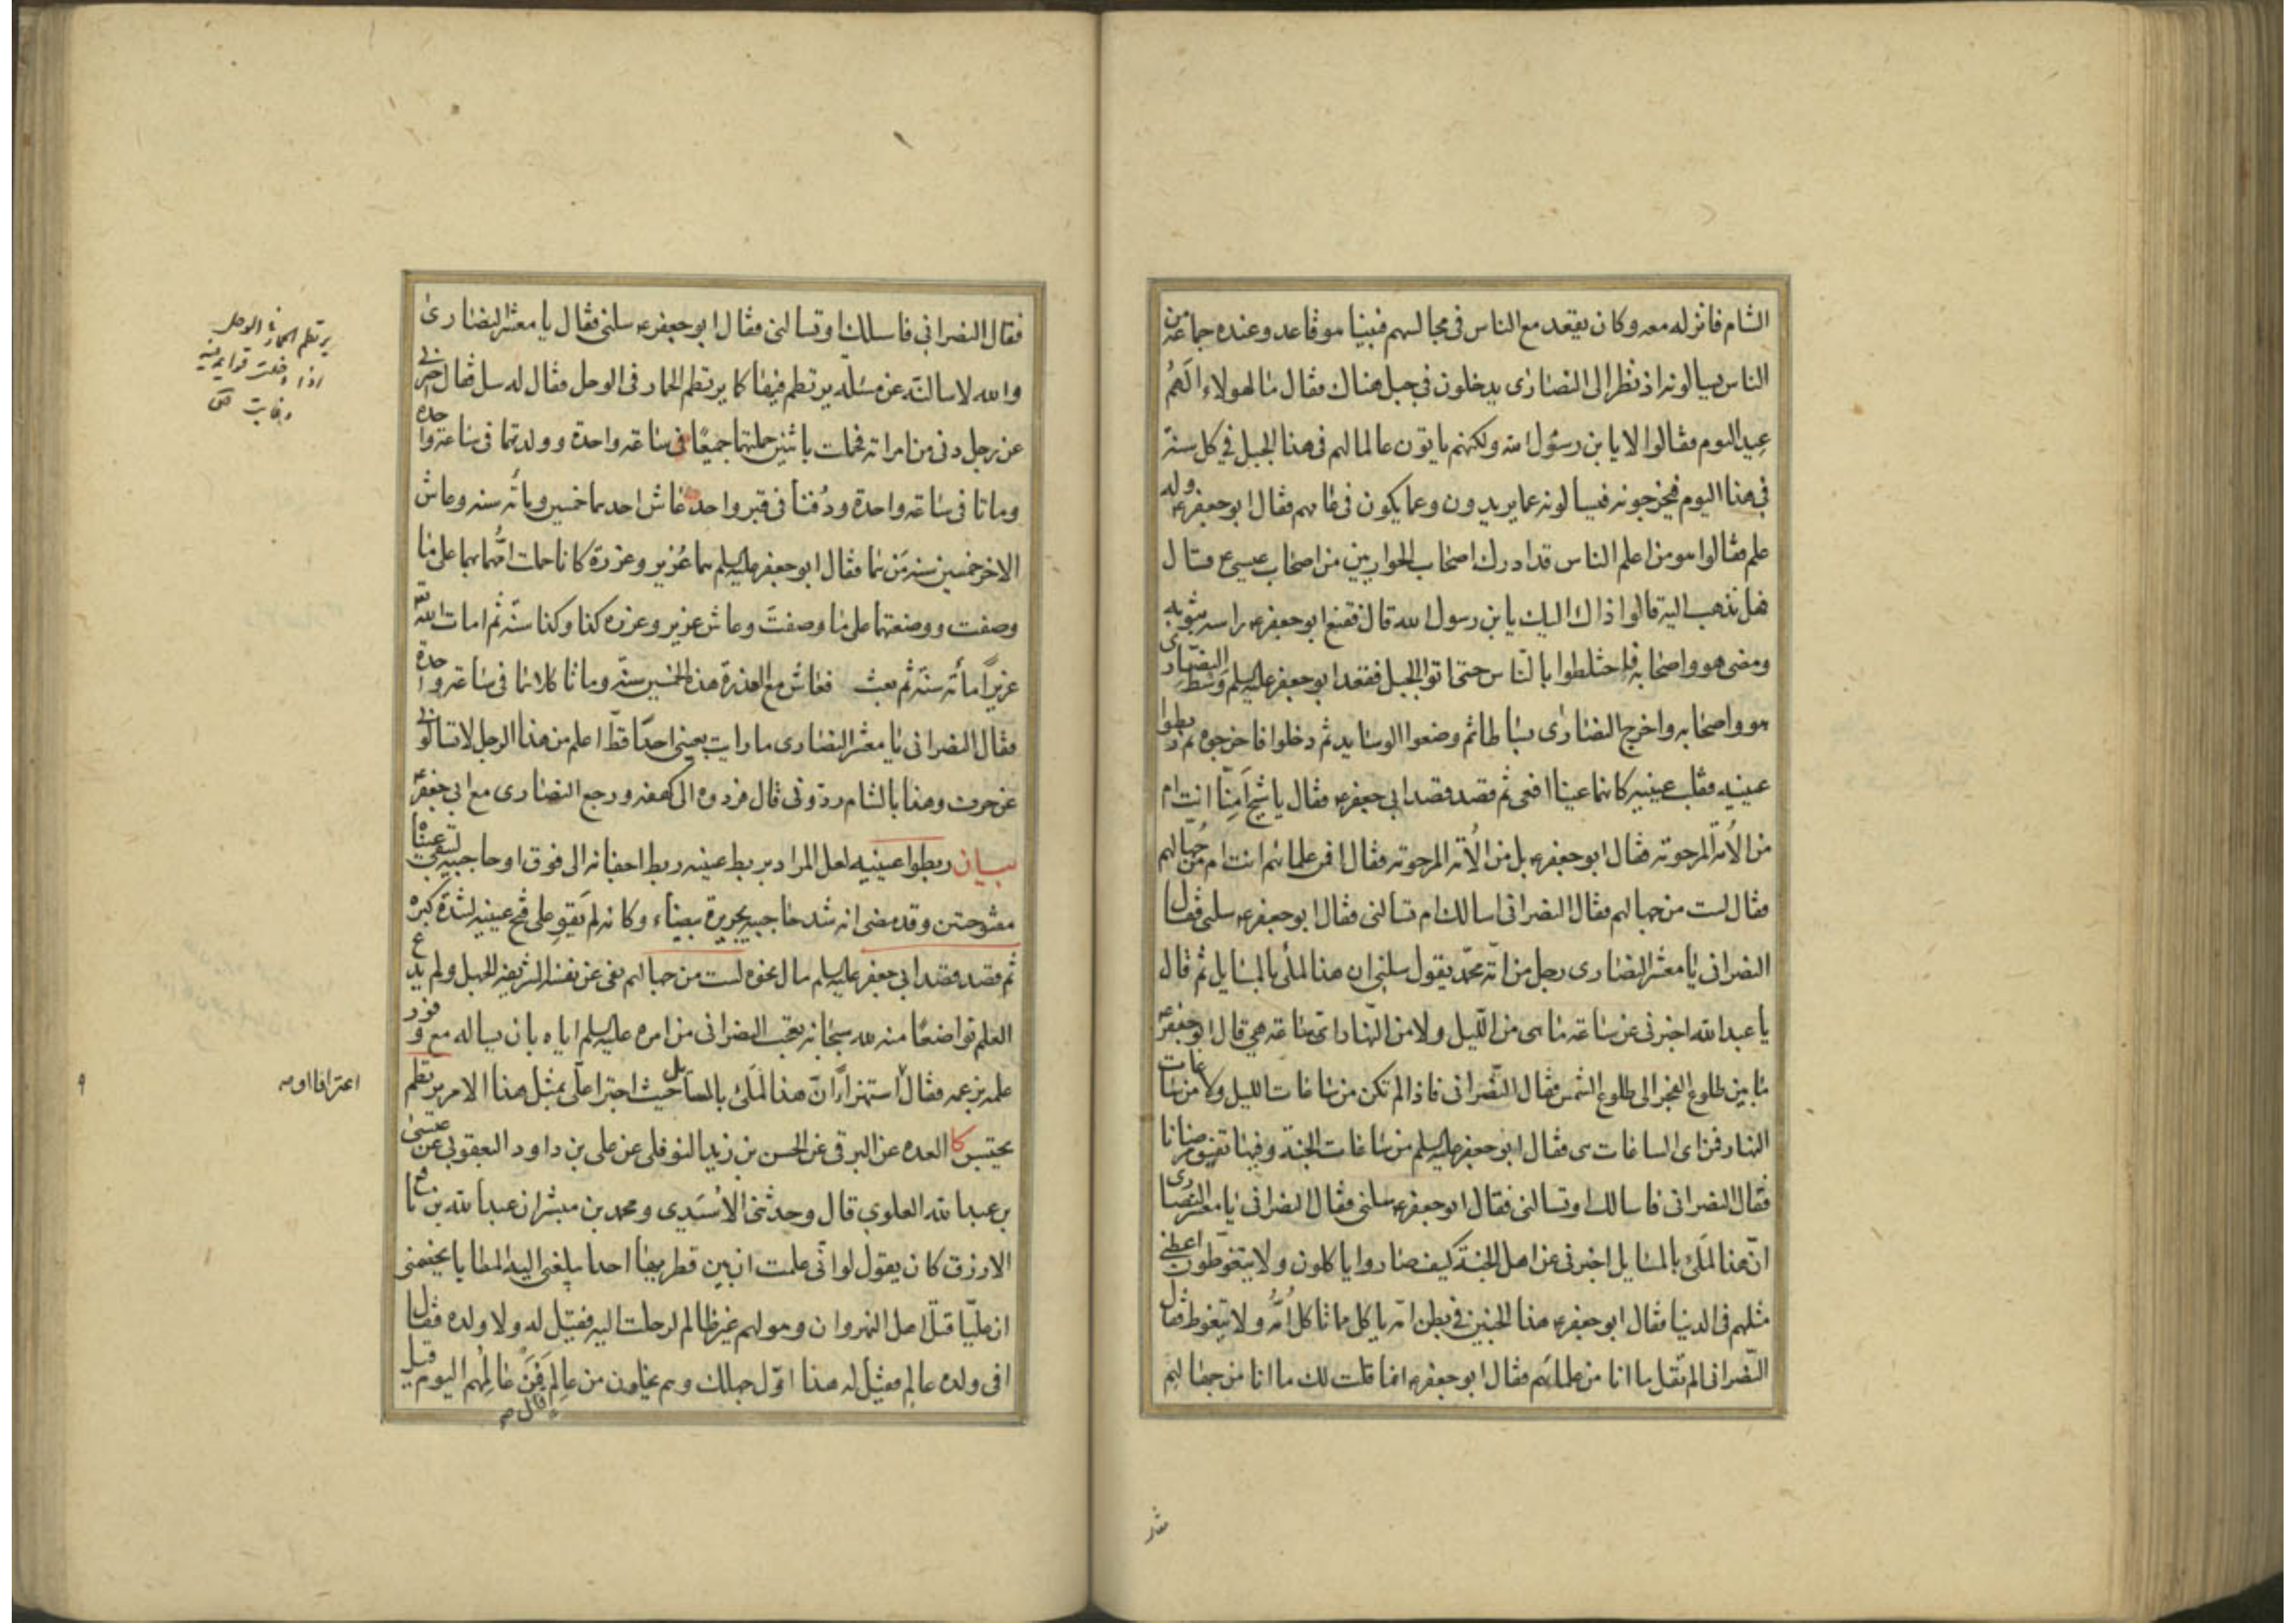 الشام فانزله معه وكان يقعد مع الناس في مجالسهم فبينا هو قاعد وعنده جماعة من
الناس يسالونه اذ نظر الى النصارى يدخلون في جبل هناك فقال ما لهولاء الَهُم
عيد اليوم فقالوا لا يا بن رسول الله ولكنهم ياتون عالما لهم في هذا الجبل في كل سنة
في هذا اليوم فيخرجونه فيسألونه عما يريدون وعما يكون في عامهم فقال ابو جعفرع وله
علم فقالوا هو من اعلم الناس قد ادرك اصحاب الحواريين من اصحاب عيسى ع فقال
فهل نذهب اليه قالوا ذاك اليك يا بن رسول الله قال فقنع ابو جعفرع راسه بثوبه
ومضى هو واصحابه فاختلطوا بالنّاس حتى اتوا الجبل فقعد ابو جعفر عليه السلم وسط النصارى
هو واصحابه واخرج النصارى بساطا ثم وضعوا الوسايد ثم دخلوا فاخرجوه ثم ربطوا
عينيه فقلب عينيه كانهما عينا افعى ثم قصد قصد ابي جعفرع فقال يا شيخ اَمِنّا انت ام
من الاُمّة المرحومة فقال ابو جعفرع بل من الاُمّة المرحومة فقال افمن علمائهم انت ام من جُهّالهم
فقال لست من جهالهم فقال النصراني اسالك ام تسالني فقال ابو جعفرع سلني فقال
النصراني يا معشر النصارى رجل من امّة محمّد يقول سلني ان هذا لملئ بالمسايل ثم قال
يا عبد الله اخبرني عن ساعة ما هي من اللّيل ولا من النّهار اي ساعة هي قال ابو جعفرع
ما بين طلوع الفجر الى طلوع الشمس فقال النّصراني فاذا لم تكن من ساعات الليل ولا من ساعات
النهار فمن اى الساعات هى فقال ابو جعفر عليه السلم من ساعات الجنة وفيها تفيق مرضانا
فقال النصراني فاسالك او تسالني فقال ابو جعفرع سلني فقال النصراني يا معشر النصارى
انّ هذا لملئ بالمسايل اخبرني عن اهل الجنّة كيف صاروا ياكلون ولا يتغوّطون اعطني
مثلهم في الدنيا فقال ابو جعفرع هذا الجنين في بطن امّه ياكل مما تاكل اُمُّه ولا يتغوط فقال
النّصراني الم تقل ما انا من علمائهم فقال ابو جعفرع انما قلت لك ما انا من جهالهم
فقال النصراني فاسئلك او تسالني فقال ابو جعفرع سلني فقال يا معشر النصارى
والله لاسالنّه عن مسئلة يرتطم فيها كما يرتطم الحمار في الوحل فقال له سل فقال اخبرني
عن رجل دنى من امراته فحملت باثنين حملتهما جميعًا في ساعة واحدة وولدتهما في ساعة واحدة
وماتا في ساعة واحدة ودُفنا في قبر واحد عاش احدهما خمسين ومأئة سنة وعاش
الاخر خمسين سنة مَن هما فقال ابو جعفر عليه السلم هما عُزير وعزرة كانا حملت امّهما بهما على ما
وصفت ووضعتهما على ما وصفتَ وعاش عزير وعزره كذا وكذا سنّة ثم امات الله
عزيرًا مأئة سنة ثم بعث فعاش مع العزرة هذه الخمسين سنّة وماتا كلاهما في ساعة واحدة
فقال النصراني يا معشر النصارى ما رايت بعيني احدًا قطّ اعلم من هذا الرجل لا تسألوني
عن حرف وهذا بالشام ردّوني قال فردوه الى كهفه ورجع النصارى مع ابي جعفرع
بيان ربطوا عينيه لعل المراد بربط عينيه ربط اجفانه الى فوق او حاجبيه لتبقى عيناه
مفتوحتين وقد مضى انه شد حاجبيه بحريرة بيضاء وكانه لم يَقوِ على فتح عينيه لشدّة كبره
ثم قصد قصد ابي جعفر عليه السلم مال نحوه لست من جهالهم نفى عن نفسه الشريفة الجهل ولم يدع
العلم تواضعًا منه لله سبحانه تعجب النصراني من امره عليه السلم اياه بان يساله مع وفور
علمه بزعمه فقال استهزاءً انّ هذا لَمَلئ بالمسائل حيث اجترا علىّ بمثل هذا الامر يرتطم
يحتبس كا العده عن البرقي عن الحسن بن زيد النوفلي عن على بن داود اليعقوبي عن عيسى
بن عبد الله العلوي قال وحدّثني الاُسَيدِي ومحمد بن مبشر ان عبد الله بن نافع
الازرق كان يقول لو انّى علمت ان بين قطريها احدا يبلغني اليه المطايا يخصمني
ان عليّا قتل اهل النهروان وهو لهم غير ظالم لرحلت اليه فقيل له ولا ولده فقال
افى ولده عالم فقيل له هذا اوّل جهلك وهم يخلون من عالِم قال فَمَن عالِمُهم اليوم قيل
يرتطم الحمار في الوحل
اذا دخلت قوايمه فيه
اعترافا او
فقال